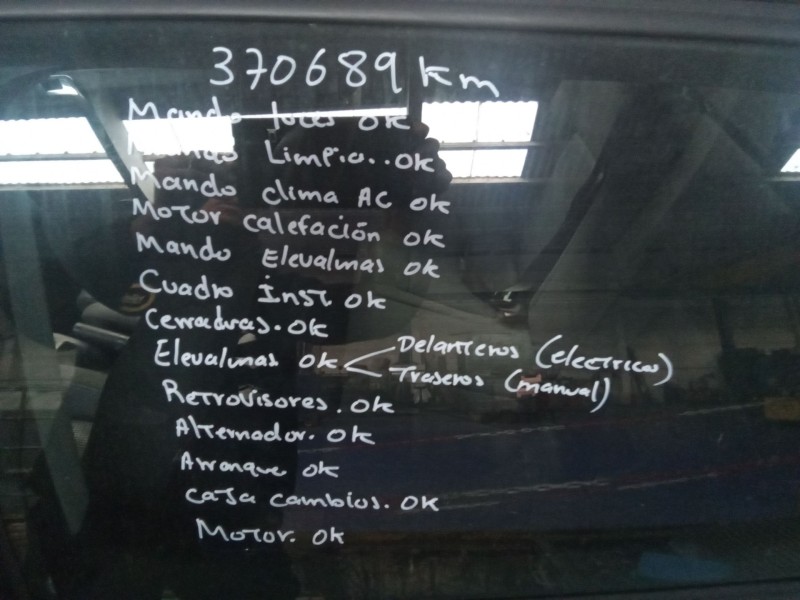 370689 km
Mando luces OK
Mando Limpia.. OK
Mando clima AC OK
Motor calefación OK
Mando Elevalunas OK
Cuadro inst OK
Cerraduras. OK
Elevalunas OK < Delanteros (electricos)
Traseros (manual)
Retrovisores. OK
Alternador. OK
Arranque OK
Caja cambios. OK
Motor. OK